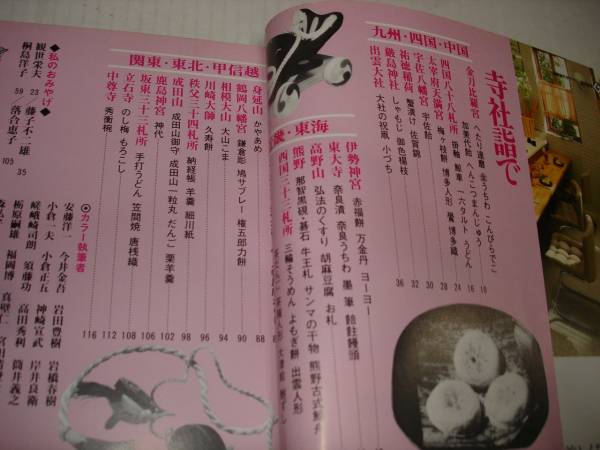 寺社詣で
九州・四国・中国
金刀比羅宮 へたり達磨 金うちわ こんぴらでこ 10
加美代飴 へんこつまんじゅう 16
四国八十八札所 掛軸 鯨車 一六タルト うどん 18
太宰府天満宮 梅ヶ枝餅 博多人形 鷽 博多織 24
宇佐八幡宮 宇佐飴 28
祐徳稲荷 蟹漬け 佐賀錦 30
厳島神社 しゃもじ 御色楊枝 32
出雲大社 大社の祝凧 小づち 36
畿・東海
伊勢神宮 赤福餅 万金丹 ヨーヨー
東大寺 奈良漬 奈良うちわ 墨 筆 饅頭
高野山 弘法のくすり 胡麻豆腐 お札
熊野 那智黒硯・碁石 牛王札 サンマの干物 熊野古式鯨舟
西国三十三札所 三輪そうめん よもぎ餅 出雲人形
関東・東北・甲信越
身延山 かやあめ 88
鶴岡八幡宮 鎌倉彫 鳩サブレー 権五郎力餅 90
相模大山 大山こま 94
川崎大師 久寿餅 96
秩父三十四札所 納経帳 羊羹 細川紙 98
成田山 成田山御守 成田山一粒丸 だんご 栗羊羹 102
鹿島神宮 神代 106
坂東三十三札所 手打うどん 笠間焼 唐桟織 108
立石寺 のし梅 もろこし 112
中尊寺 秀衡椀 116
◆私のおみやげ◆
観世栄夫 23 藤子不二雄 35
桐島洋子 59/落合恵子 105
◎カラー執筆者
安藤洋一 今井金吾 岩田豊樹 岩橋春樹
小倉一夫 小倉正五 神崎宣武 岸井良衞
嵯峨崎司朗 須藤功 高田秀利 筒井義之
栃原嗣雄 福岡博 真壁仁